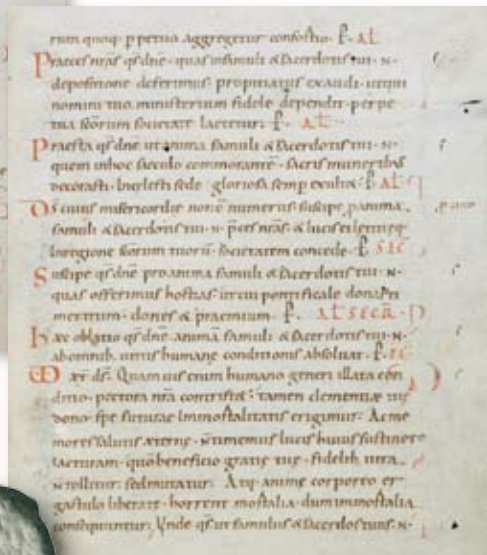 rum quoq· ppetuo aggregetur consortio· P· AL
Praeces nras qs dne· quas in famuli & sacerdotis tui· N·
depositione deferimus· propitiatus exaudi· ut qui
nomini tuo ministerium fidele dependit· perpe
tua scorum societate laetetur· P· AL·
Praesta qs dne ut anima famuli & sacerdotis tui· N·
quem in hoc saeculo commorante· sacris muneribus
decorasti· in caelesti sede gloriosa semp exultet· P AL
Ds cuius misericordie non e numerus suscipe p anima
famuli & sacerdotis tui· N· pces nras· & lucis ei letitieq·
in regione scorum tuorum societatem concede· P· SEC
Suscipe qs dne pro anima famuli & sacerdotis tui· N·
quas offerimus hostias· ut cui pontificale donasti
meritum· dones & praemium· P· AL SECR
Haec oblatio qs dne animā famuli & sacerdotis tui· N·
ab omnib· vitiis humane conditionis absoluat· P·
ds· Quamuis enim humano generi illata con
ditio· pectora nra contristet· tamen clementiae tuę
dono· spe futurae immortalitatis erigimur· Ac me
mores salutis aeterne· N timemus lucis huius sustinere
iacturam· quo beneficio gratię tuę· fidelib uita
N tollitur· sed mutatur· Atq· anime corporeo er
gastulo liberate· horrent mortalia· dum immortalia
consequuntur· Unde qs ut famulus & sacerdos tuus· N·